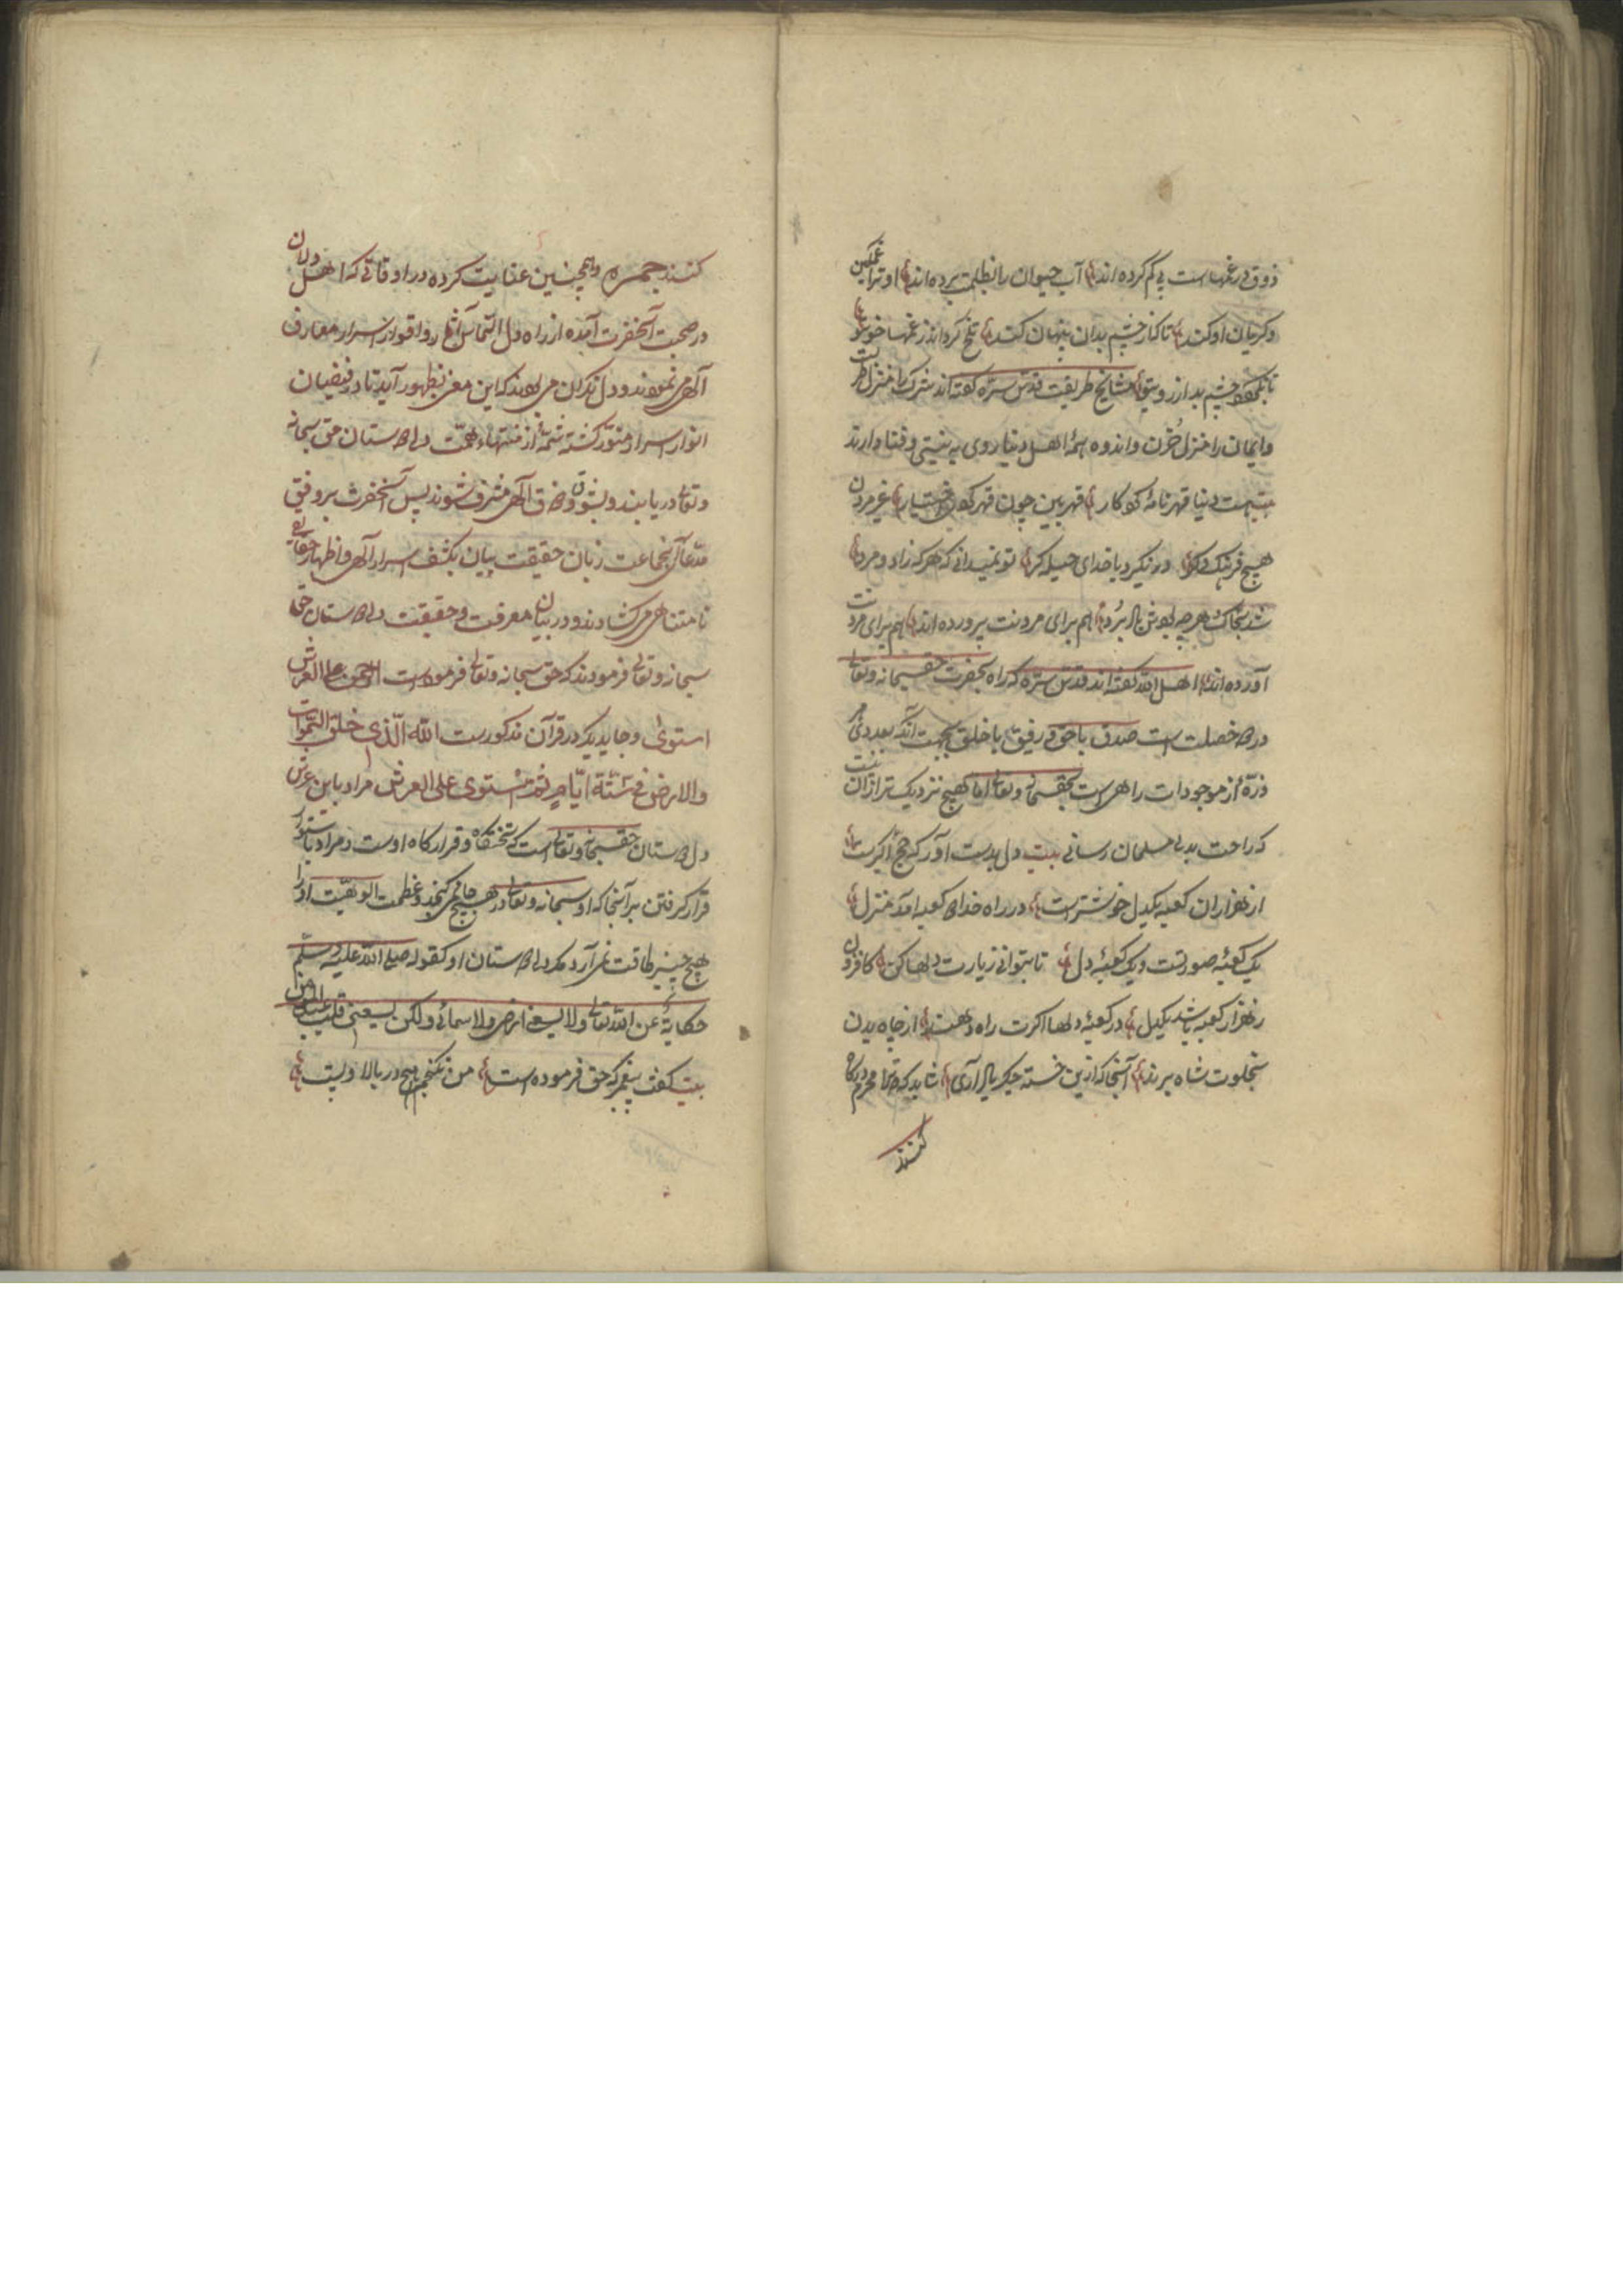 ذوق در غمهاست پی کم کرده اند آب حیوان را بظلمت برده اند او ترا غمگین
و گریان او کند تا کنار چشم بدان پنهان کند تلخ گرداند ز غمها خوی تو
تا نگردد چشم بد از روی تو مشایخ طریقت قدس سره گفته اند شرک را منزل طرب
و ایمان را منزل حزن و اندوه همه اهل دنیا روی به نیستی و فنا دارند
بیت هست دنیا قهرنامه کردگار قهر بین چون قهر کردی اختیار غیر مردن
هیچ فرهنگ دگر در نگیرد با خدای حیله گر تو نمیدانی که هر که زاد و مرد
شد بخاک و هرچه بودش باد برد هم برای مردنت پرورده اند هم برای مردنت
آورده اند اهل الله گفته اند قدس سره که راه بحضرت حق سبحانه وتعالی
در دو خصلت است صدق با حق و رفق با خلق بجهت آنکه بعدد هر
ذره از موجودات راهی است بحق سبحانه وتعالی اما هیچ نزدیک تر از آن نیست
که راحت بدل مسلمان رسانی بیت دل بدست آور که حج اکبرست
از هزاران کعبه یکدل خوشترست در راه خدا دو کعبه آمد منزل
یک کعبه صورتست و یک کعبه دل تا بتوانی زیارت دلها کن کافزون
ز هزار کعبه باشد یکدل در کعبه دلها اگرت راه دهند از چاه بدن
بخلوت شاه برند آنجا که ازین خسته جگر یاد آری شاید که مرا محرم درگاه
کنند
کنند جمره و همچنین عنایت کرده در اوقاتی که اهل دلان
در صحبت آنحضرت آمده از راه دل التماس اظهار و اقوال اسرار معارف
آلهی می نمودند و دل نگران می بودند که این معنی بظهور آید تا در فیضان
انوار اسرار منور گشته شمه از منتهاء همت دل دوستان حق سبحانه
وتعالی دریابند و بشوق و ذوق آلهی مشرف شوند پس آنحضرت بر وفق
مدعا آن جماعت زبان حقیقت بیان بکشف اسرار آلهی و اظهار حقایق
نامتناهی می گشادند و در بیان معرفت و حقیقت دل دوستان حق
سبحانه وتعالی فرمودند که حق سبحانه وتعالی فرموده است الرحمن علی العرش
استوی و جای دیگر در قرآن مذکورست الله الذی خلق السموات
والارض فی ستة ایام ثم استوی علی العرش مراد باین عرش
دل دوستان حق سبحانه وتعالی است که تختگاه و قرارگاه اوست و مراد باستوا
قرار گرفتن بر آنجا که او سبحانه وتعالی در هیچ جائی نمی گنجد و عظمت الوهیت او را
هیچ چیز طاقت نمی آرد مگر دل دوستان او کقوله صلی الله علیه وسلم
حکایة عن الله تعالی ولا یسعنی ارضی ولا سمائی ولکن یسعنی قلب عبدی المؤمن
بیت گفت پیغمبر که حق فرموده است من نگنجم هیچ در بالا و پست